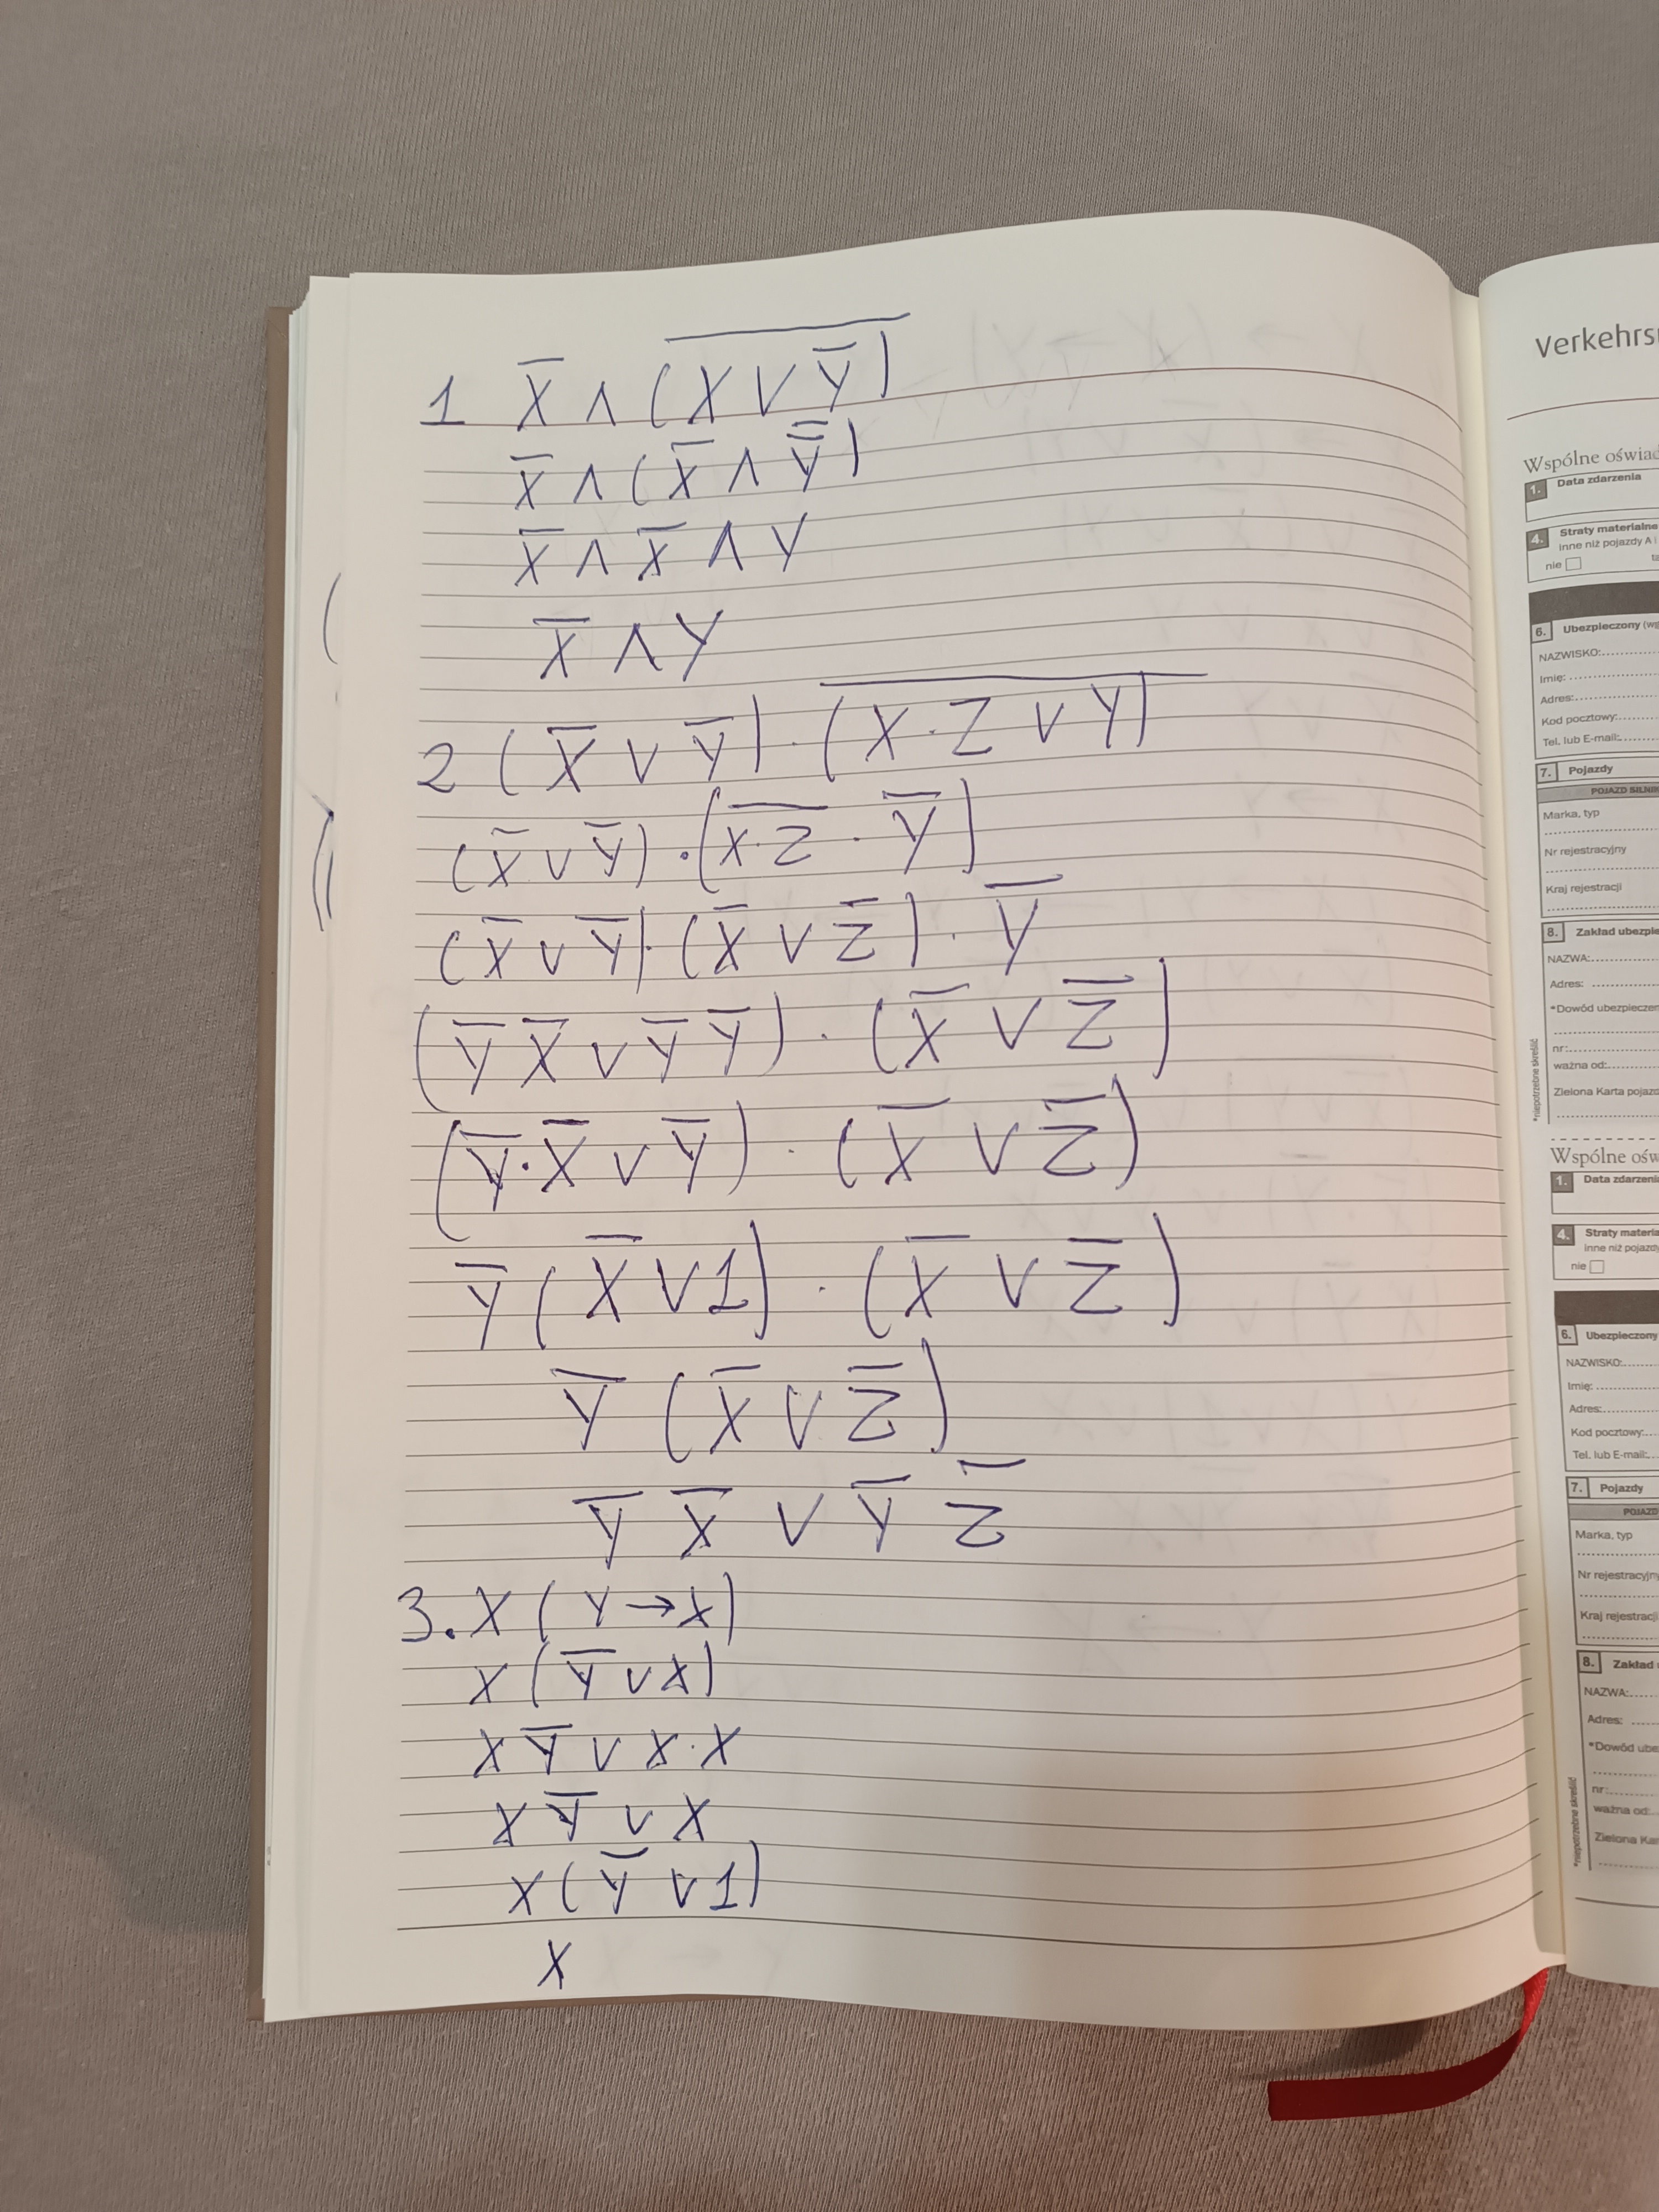 1 X̅ ∧ (X ∨ Y̅)̅
X̅ ∧ (X̅ ∧ Y̿)
X̅ ∧ X̅ ∧ Y
X̅ ∧ Y
2 (X̅ ∨ Y̅) · (X̅·̅Z̅ ̅∨̅ ̅Y̅)
(X̅ ∨ Y̅) · (X̅·̅Z̅ · Y̅)
(X̅ ∨ Y̅) · (X̅ ∨ Z̅) · Y̅
(Y̅ X̅ ∨ Y̅ Y̅) · (X̅ ∨ Z̅)
(Y̅·X̅ ∨ Y̅) · (X̅ ∨ Z̅)
Y̅ (X̅ ∨ 1) · (X̅ ∨ Z̅)
Y̅ (X̅ ∨ Z̅)
Y̅ X̅ ∨ Y̅ Z̅
3. X (Y → X)
X (Y̅ ∨ X)
X Y̅ ∨ X · X
X Y̅ ∨ X
X (Y̅ ∨ 1)
X
Verkehrs
Wspólne oświad
1. Data zdarzenia
4. Straty materialne
inne niż pojazdy A i
nie
6. Ubezpieczony
NAZWISKO:
Imię:
Adres:
Kod pocztowy:
Tel. lub E-mail:
7. Pojazdy
POJAZD SILNIK
Marka, typ
Nr rejestracyjny
Kraj rejestracji
8. Zakład ubezpie
NAZWA:
Adres:
*Dowód ubezpieczen
nr:
ważna od:
Zielona Karta pojazd
*niepotrzebne skreślić
Wspólne ośw
1. Data zdarzenia
4. Straty materia
inne niż pojazdy
nie
6. Ubezpieczony
NAZWISKO:
Imię:
Adres:
Kod pocztowy:
Tel. lub E-mail:
7. Pojazdy
POJAZD
Marka, typ
Nr rejestracyjny
Kraj rejestracji
8. Zakład
NAZWA:
Adres:
*Dowód ube
nr:
ważna od:
Zielona Ka
*niepotrzebne skreślić